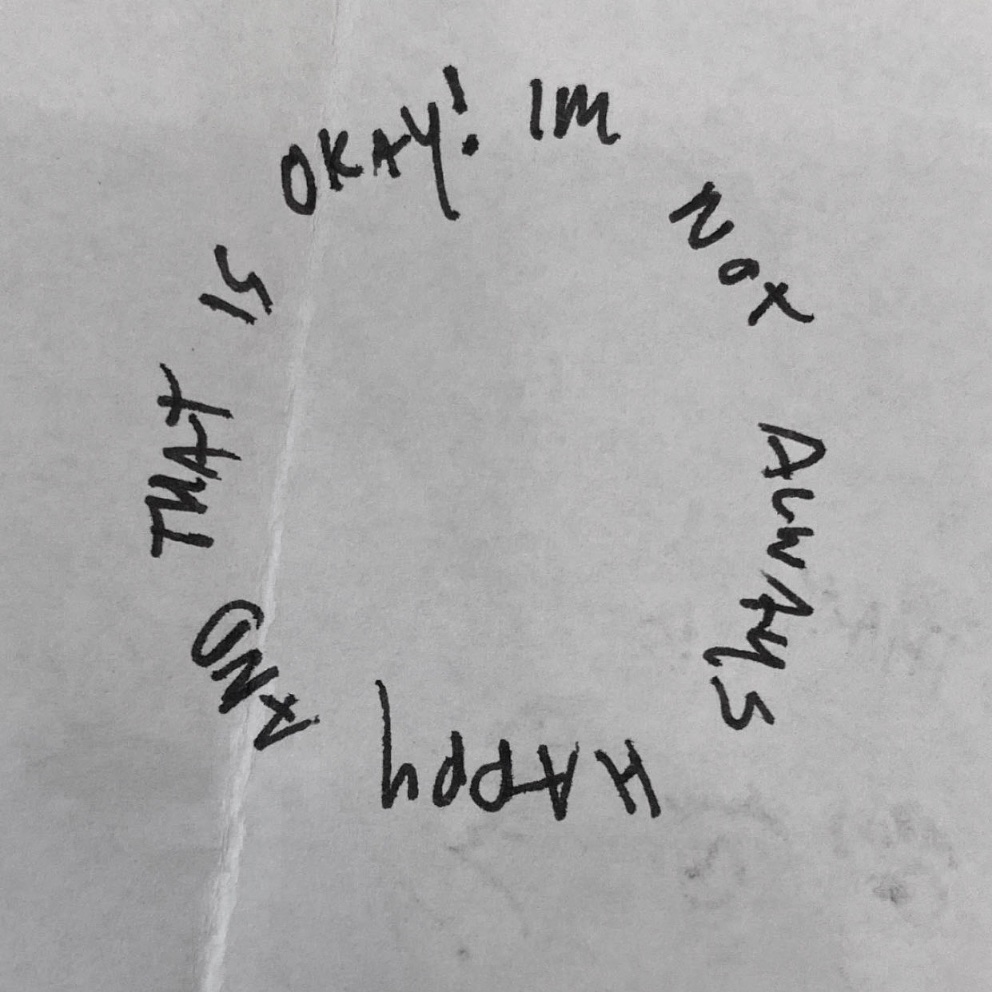 IM NOT ALWAYS HAPPY AND THAT IS OKAY!